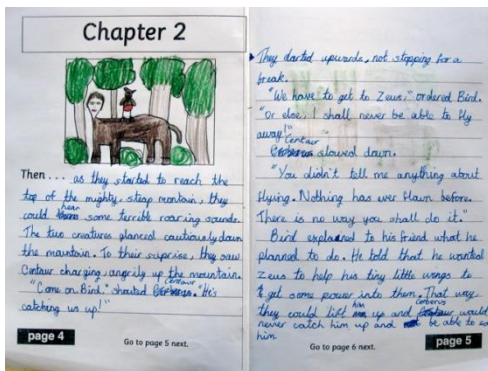 Chapter 2
Then ... as they started to reach the
top of the mighty, steep montain, they
could hear some terrible roaring sounds.
The two creatures glanced cautiously down
the mountain. To their suprise, they saw
Centaur charging, angrily up the mountain.
"Come on Bird." shouted Centaur. "He's
catching us up!"
page 4
Go to page 5 next.
They darted upwards, not stopping for a
break.
"We have to get to Zeus," ordered Bird.
"or else, I shall never be able to fly
away!"
Centaur slowed down.
"You didn't tell me anything about
flying. Nothing has ever flawn before.
There is no way you shall do it."
Bird explained to his friend what he
planned to do. He told that he wanted
Zeus to help his tiny little wings to
get some power into them. That way,
they could lift him up and Cerberus would
never catch him up and be able to ea
him
Go to page 6 next.
page 5